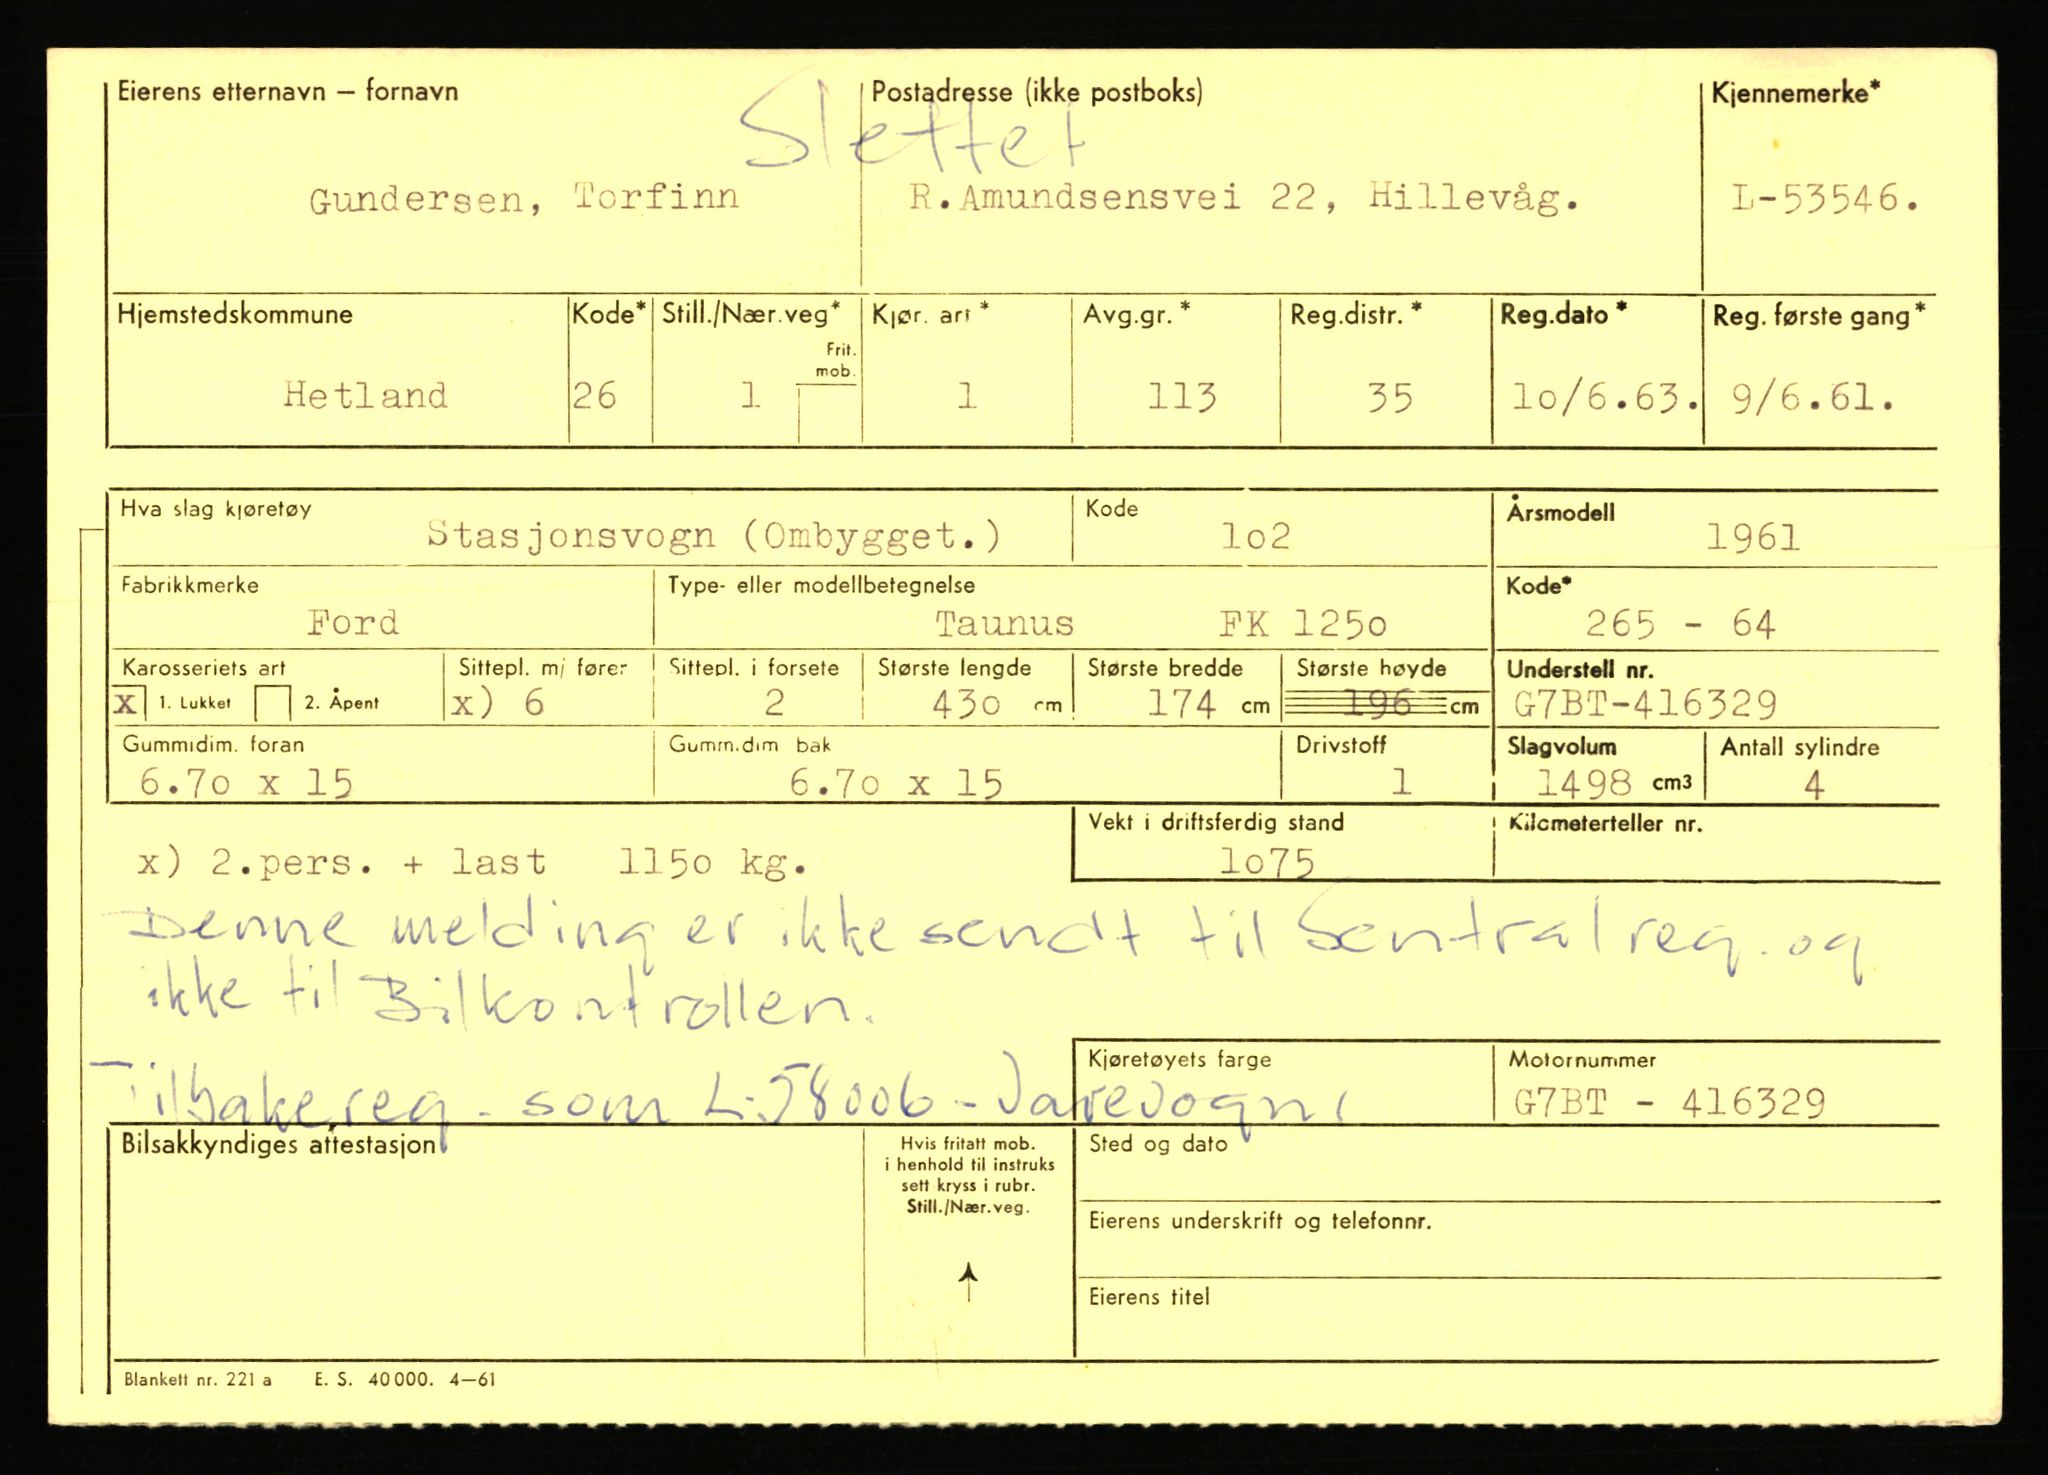 Eierens etternavn — fornavn Postadresse (ikke postboks) Kjennemerke*
Slettet
Gundersen, Torfinn R.Amundsensvei 22, Hillevåg. L-53546.
Hjemstedskommune Kode* Still./Nær.veg* Kjør. art* Avg.gr.* Reg.distr.* Reg.dato* Reg. første gang*
Frit.
mob.
Hetland 26 1 1 113 35 lo/6.63. 9/6.61.
Hva slag kjøretøy Kode Årsmodell
Stasjonsvogn (Ombygget.) lo2 1961
Fabrikkmerke Type- eller modellbetegnelse Kode*
Ford Taunus FK 125o 265 - 64
Karosseriets art Sittepl. m/ fører Sittepl. i forsete Største lengde Største bredde Største høyde Understell nr.
x 1. Lukket 2. Åpent x) 6 2 43o cm 174 cm 196 cm G7BT-416329
Gummidim. foran Gummidim bak Drivstoff Slagvolum Antall sylindre
6.7o x 15 6.7o x 15 1 1498 cm3 4
Vekt i driftsferdig stand Kilometerteller nr.
x) 2.pers. + last 115o kg. lo75
Denne melding er ikke sendt til Sentralreg. og
ikke til Bilkontrollen.
Kjøretøyets farge Motornummer
Tilbakereg. som L-58006 - Varevogn. G7BT - 416329
Bilsakkyndiges attestasjon Hvis fritatt mob. Sted og dato
i henhold til instruks
sett kryss i rubr.
Still./Nær.veg.
Eierens underskrift og telefonnr.
Eierens titel
Blankett nr. 221 a E. S. 40 000. 4—61